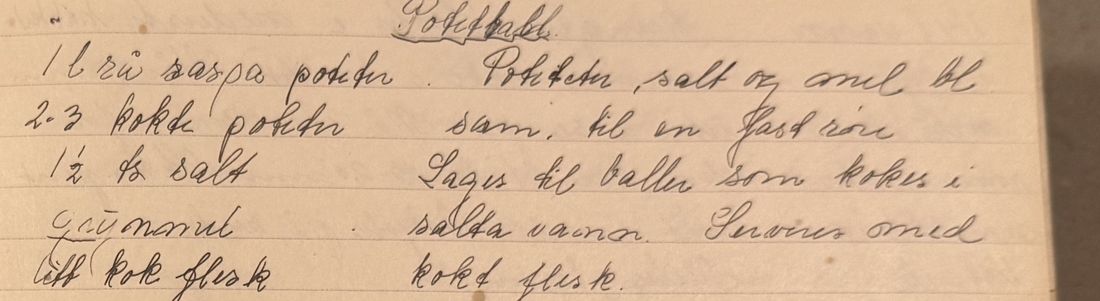 Potetball
1 l rå raspa poteter.
2-3 kokte poteter
1½ ts salt
grynmel
litt kok flesk
Poteter, salt og mel bl
sam. til en fast røre
Lages til baller som kokes i
salta vann. Serveres med
kokt flesk.